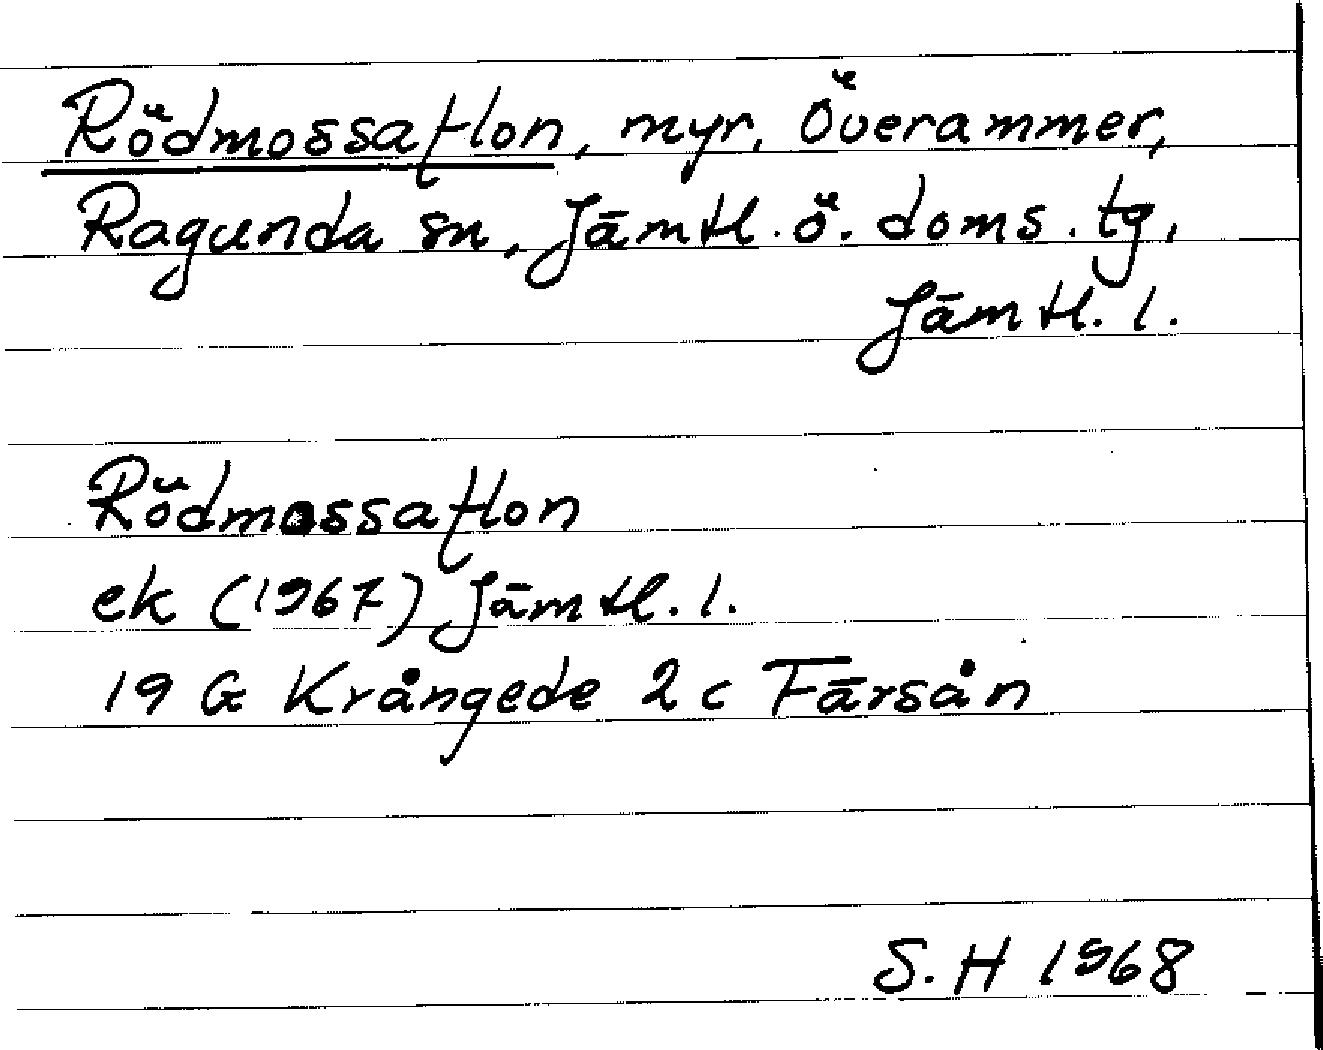 Rödmossaflon, myr, Överammer,
Ragunda sn, Jämtl. ö. doms. tg,
Jämtl. l.
Rödmossaflon
ek (1967) Jämtl. l.
19 G Krångede 2 c Färsån
S. H 1968